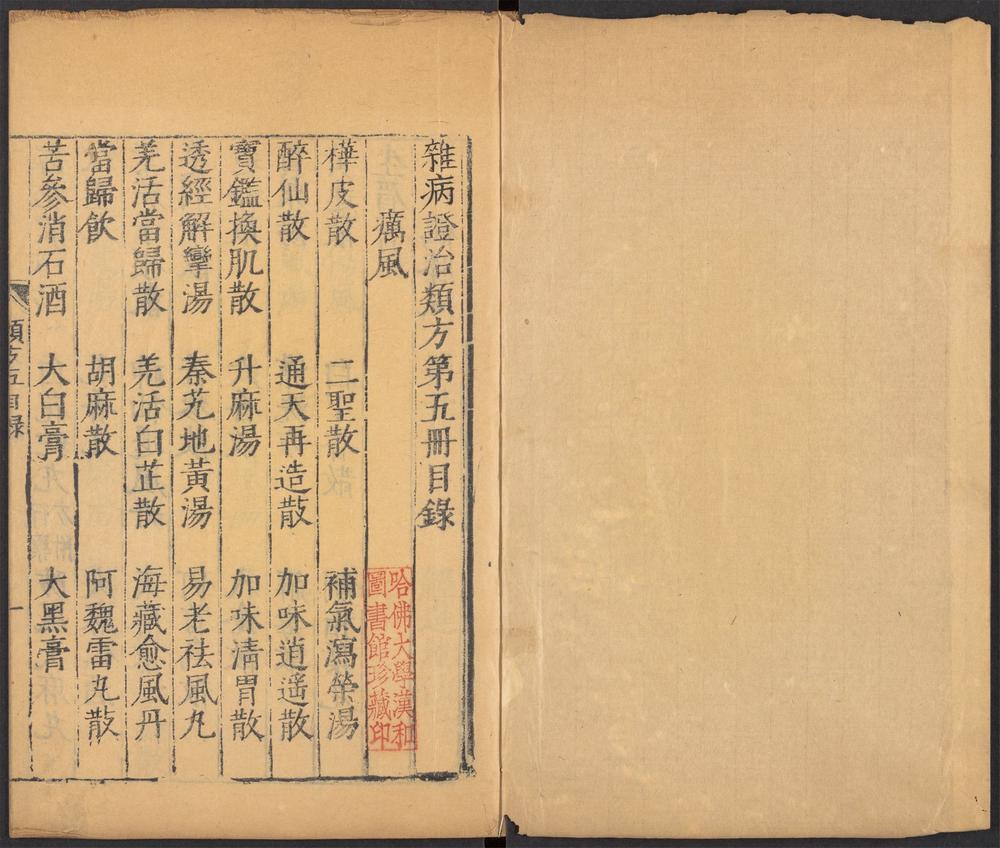 雜病證治類方第五冊目錄
癘風
樺皮散 二聖散 補氣瀉榮湯
醉仙散 通天再造散 加味逍遥散
寶鑑換肌散 升麻湯 加味清胃散
透經解攣湯 秦艽地黃湯 易老祛風丸
羌活當歸散 羌活白芷散 海藏愈風丹
當歸飲 胡麻散 阿魏雷丸散
苦參消石酒 大白膏 大黑膏
類方五目錄
一
哈佛大學漢和
圖書館珍藏印